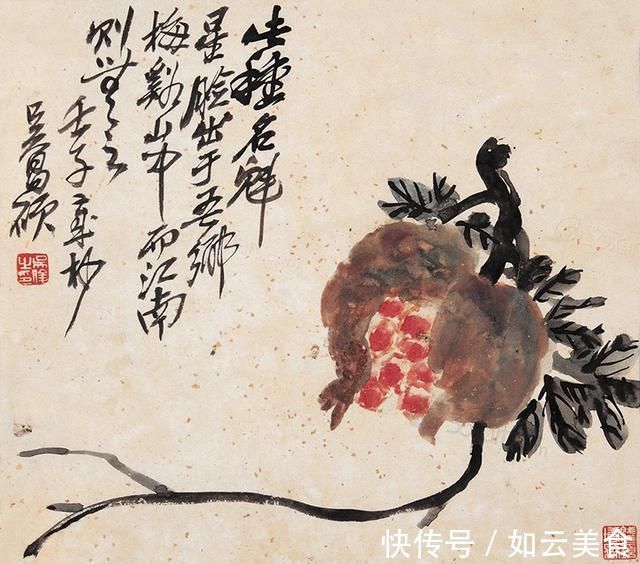 此種名魁
星臉出于吾鄉
梅谿山中而江南
則無之
壬子杪
吴昌碩
快传号 / 如云美食